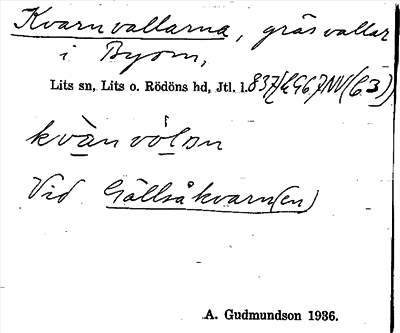 Kvarnvallarna, gräsvallar
i Byom,
Lits sn, Lits o. Rödöns hd, Jtl. l.
kvàn
Vid Gällsåkvarn(en)
A. Gudmundson 1936.